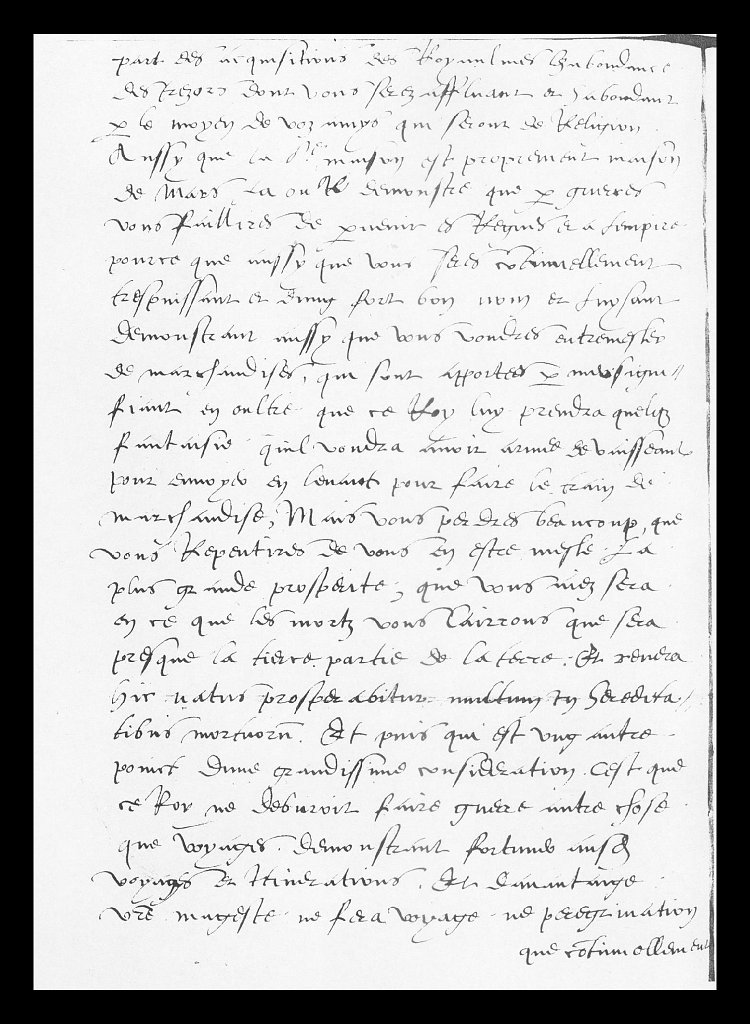 part des acquisitions des Royaulmes Habondance
des trezors dont vous serez affluant et habondant
p le moyen de voz amys qui seront de Religion
Aussy que la maison est proprement maison
de Mars La ou demonstre que p guerres
vous faillires de pvenir es Regnes et a Lempire
pource que aussy que vous seres cotinuellement
trespuissant et dung fort bon nom et luysant
demonstrant aussy que vous vondres entremesler
de marchandises, qui sont apportees p mer signi=
fiant en oultre que ce Roy luy prendra quelq
fantaisie quil vondra avoir armee de vaisseaulx
pour envoyer en levant pour faire le train de
marchandise, Mais vous perdres beaucoup, que
vous Repentires de vous en estre mesle. La
plus grande prosperite, que vous aiez sera
en ce que les mortz vous lairrons que sera
presque la tierce partie de la terre. Et rendra
hic natus prosperabitur multum in heredita=
tibus mortuoru. Et puis qui est ung autre
poinct dune grandissime consideration. Cest que
ce Roy ne deburoit faire guerre autre chose
que voyages. demonstrant fortune ausd
voyages et Itinerations. Et davantaige
vre mageste ne fera voyage ne peregrination
que cotinuellement